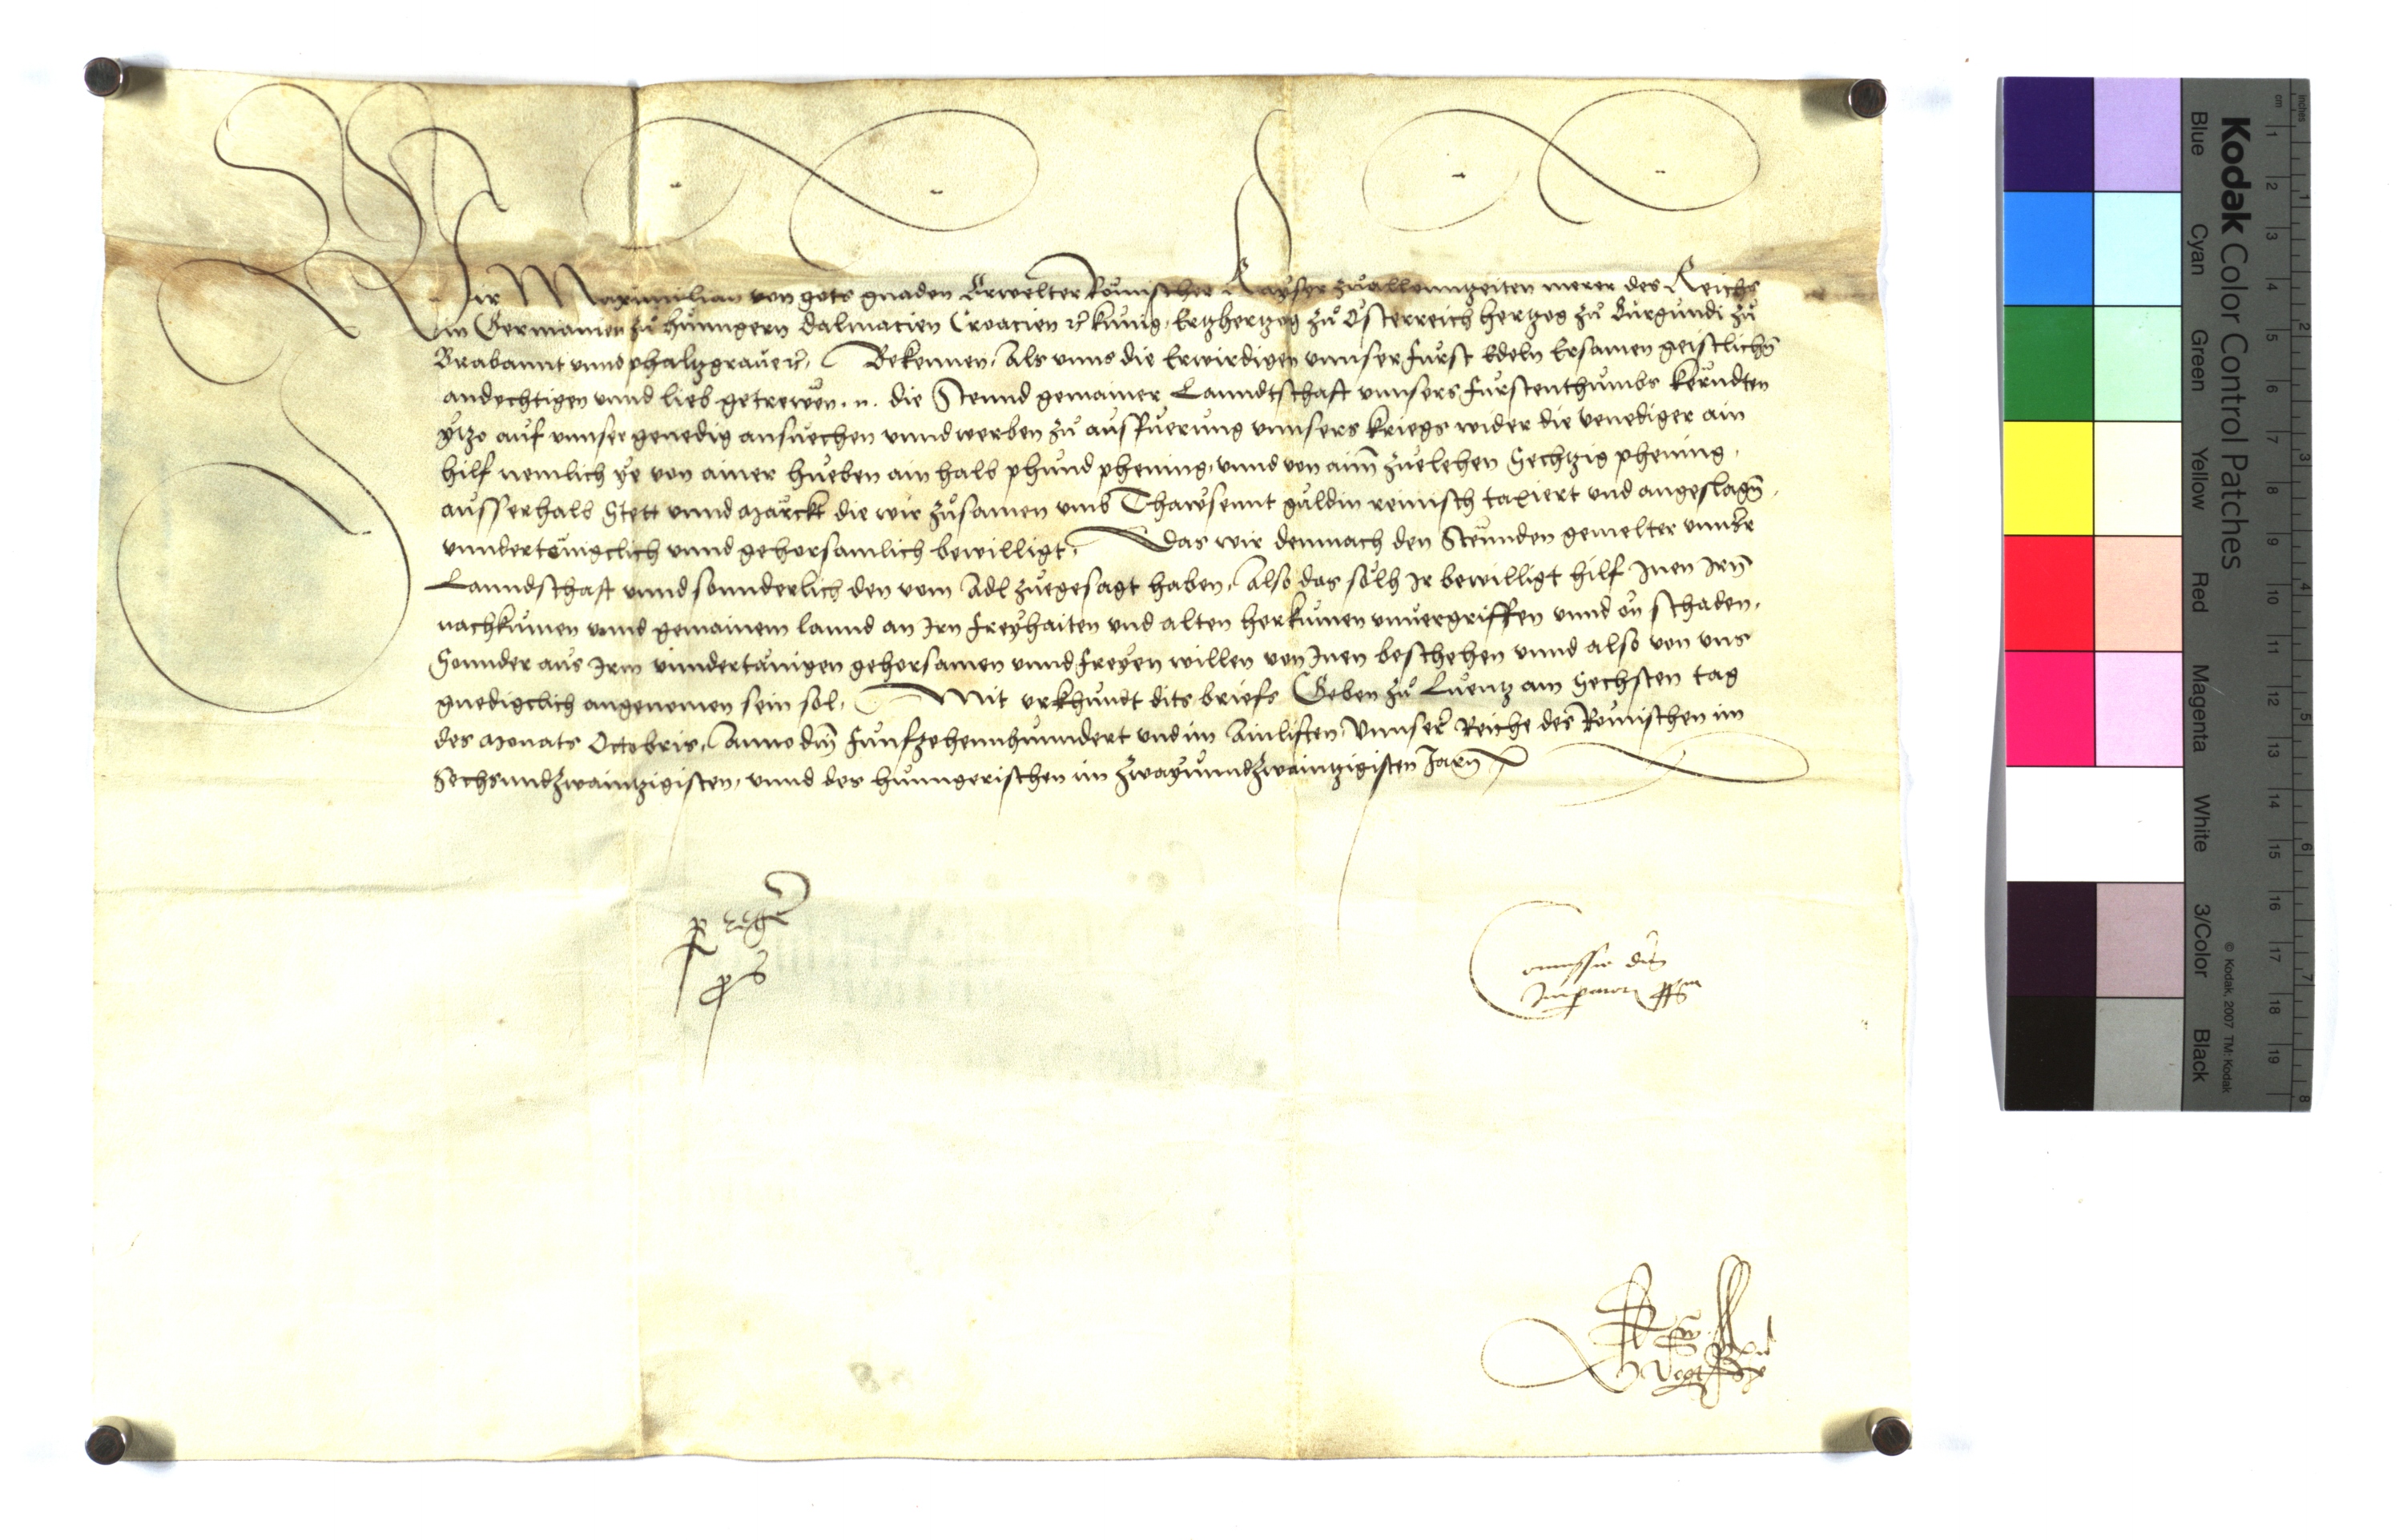 Wir Maximilian von gots gnaden Erwelter Römischer Kayser zuallenntzeiten merer des Reichs
in Germanien zu Hunngern Dalmacien Croacien rc kunig, Ertzhertzog zu Österreich hertzog zu Burgundi zu
Brabannt vnnd phaltzgraue rc. Bekennen, Als vnns die Erwirdigen vnnser furst Edeln Ersamen geistlichn̄
andechtigen vnnd lieb getrewen. n. die Stennd gemainer Lanndtschaft vnnsers furstenthumbs kerndten
ytzo auf vnnser genedig ansuechen vnnd werben zu ausfuerung vnnsers kriegs wider die venediger ain
hilf nemlich ye von ainer hueben ain halb phund phening, vnnd von aim̄ zuelehen Sechtzig phening,
ausserhalb Stett vnnd märckt die wir zusamen vmb Thawsennt guldin reinisch taxiert vnd angeslagn̄,
vnndertenigclich vnnd gehorsamlich bewilligt, Das wir demnach den Stennden gemelter vnnser
Lanndschaft vnnd sonnderlich den vom Adl zuegesagt haben, Also das sölh Ir bewilligt hilf Inen Irn̄
nachkumen vnnd gemainem lannd an Irn freyhaiten vnd alten herkumen vnuergriffen vnnd on schaden,
Sonnder aus Irm vnndertänigen gehorsamen vnnd freyen willen von Inen beschehen vnnd also von vns
gnedigclich angenomen sein sol, Mit vrkhundt dits briefs Geben zu Luentz am Sechsten tag
des monats Octobris, Anno dm̄ funfzehennhunndert vnd im Ainliften, Vnnserr Reiche des Römischen im
Sechsundzwaintzigisten, vnnd des hunngerischen im zwayunndzwaintzigisten Jarn̄
p regē
p s
Comissio dn̄i
Imperatoris pp̄m
Kodak Color Control Patches
Blue Cyan Green Yellow Red Magenta White 3/Color Black
cm 1 2 3 4 5 6 7 8 9 10 11 12 13 14 15 16 17 18 19
inches 1 2 3 4 5 6 7 8
© Kodak, 2007 TM: Kodak